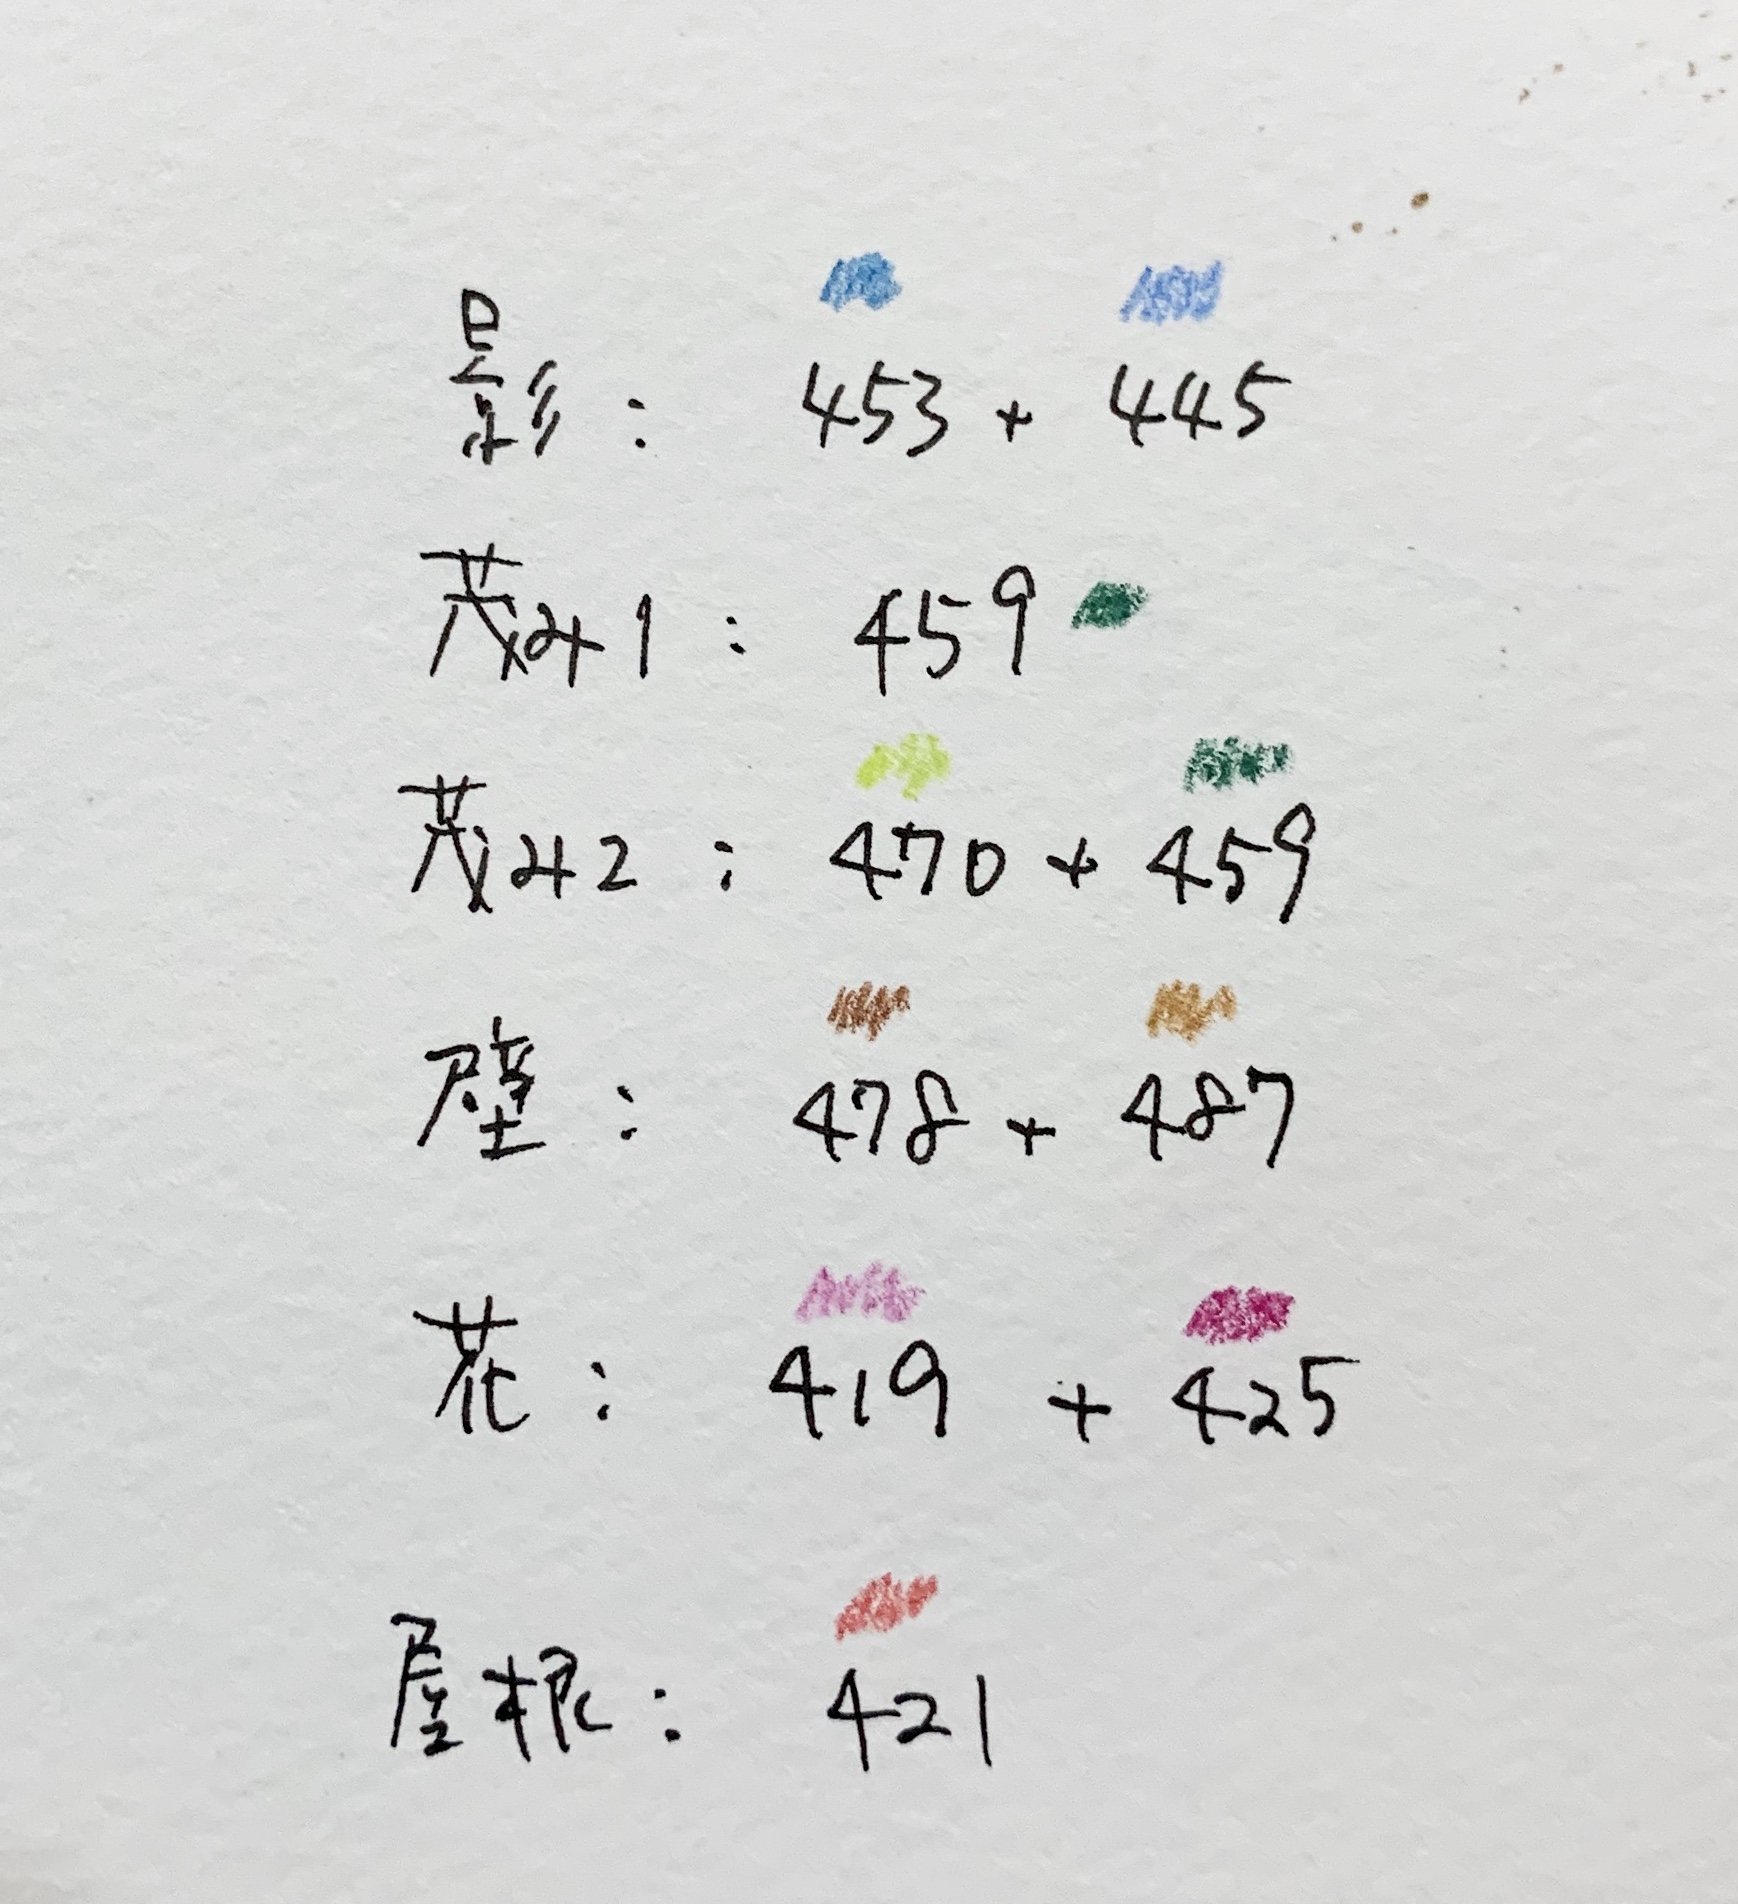 影: 453 + 445
茂み1: 459
茂み2: 470 + 459
壁: 478 + 487
花: 419 + 425
屋根: 421